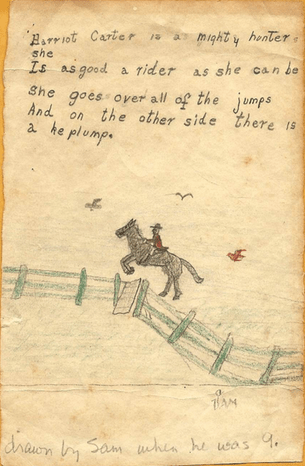 Harriot Carter is a mighty honter
she
Is as good a rider as she can be
She goes over all of the jumps
And on the other side there is
a ke plump.
9
SAM
drawn by Sam when he was 9.